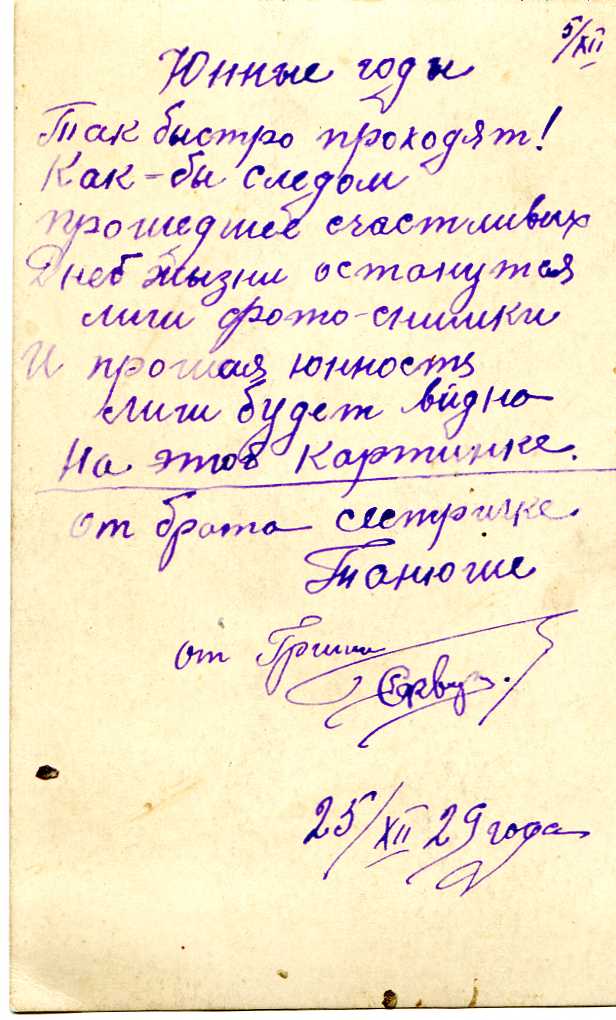 5/XII
Юнные годы
Так быстро проходят!
Как-бы следом
прошедшее счастливых
Дней жызни останутся
лиш фото-снимки
И прошлая юнность
лиш будет видна
На этой картинке.
От брата сестричке
Танюше
от Гриши
25/XII 29 года